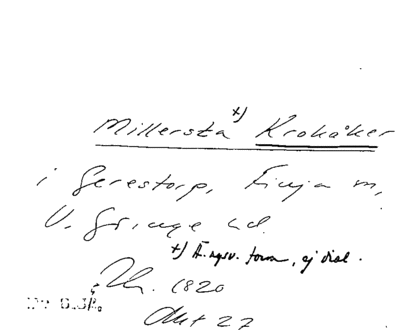 Millersta x) Krokåker
i Gerestorp, Finja m,
V. Göinge hd.
x) A. nysv. form, ej dial.
Zh. 1820
Akt 27